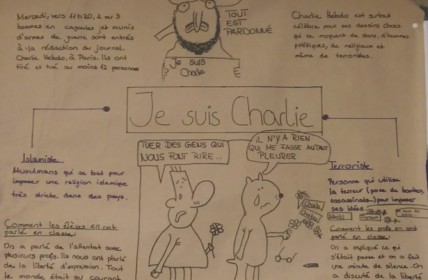 Mercredi, vers 11h20, 2 ou 3
hommes en cagoules et munis
d'armes de guerre sont entrés
à la rédaction du journal
Charlie Hebdo, à Paris. Ils ont
tiré et tué au moins 12 personnes
TOUT
EST
PARDONNÉ
Je SUIS
Charlie
Charlie Hebdo est surtout
célèbre pour ses dessins chocs
qui se moquent de stars, d'hommes
politiques, de religieux et
même de terroristes.
Je suis Charlie
Islamiste
Musulmans qui se bat pour
imposer une religion islamique
très stricte dans des pays.
TUER DES GENS QUI
NOUS FONT RIRE...
IL N'Y A RIEN
QUI ME FASSE AUTANT
PLEURER
Terroriste
Personne qui utilise
la terreur (pose de bombes,
assassinats) pour imposer
ses idées
Comment les élèves en ont
parlé en classe
On a parlé de l'attentat avec
plusieurs profs. Ils nous ont parlé
de la liberté d'expression. Tout
le monde était au courant
Comment les profs en ont
parlé en classe
On a expliqué ce qui
s'était passé et on a fait
une minute de silence. On
a discuté de la liberté